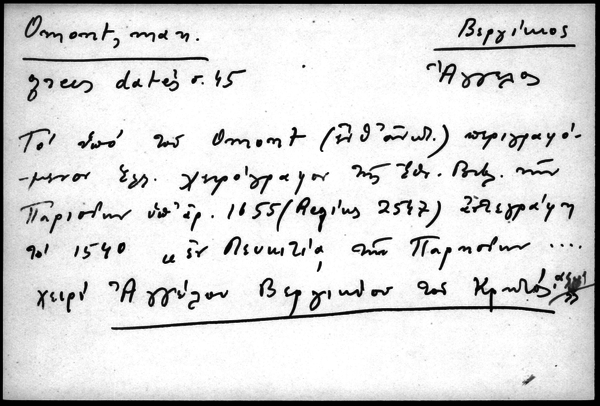 Omont, man. Βεργίκιος
grecs datés σ. 45 Ἄγγελος
Τὸ ὑπὸ τοῦ Omont (ἔνθ' ἀνωτ.) περιγραφό-
-μενον ἑλλ. χειρόγραφον τῆς Ἐθν. Βιβλ. τῶν
Παρισίων ὑπ' ἀρ. 1655 (Regius 2547) ἀντεγράφη
τὸ 1540 ἐν τῶν Παρισίων ....
χειρὶ Ἀγγέλου Βεργικίου τοῦ Κρητός